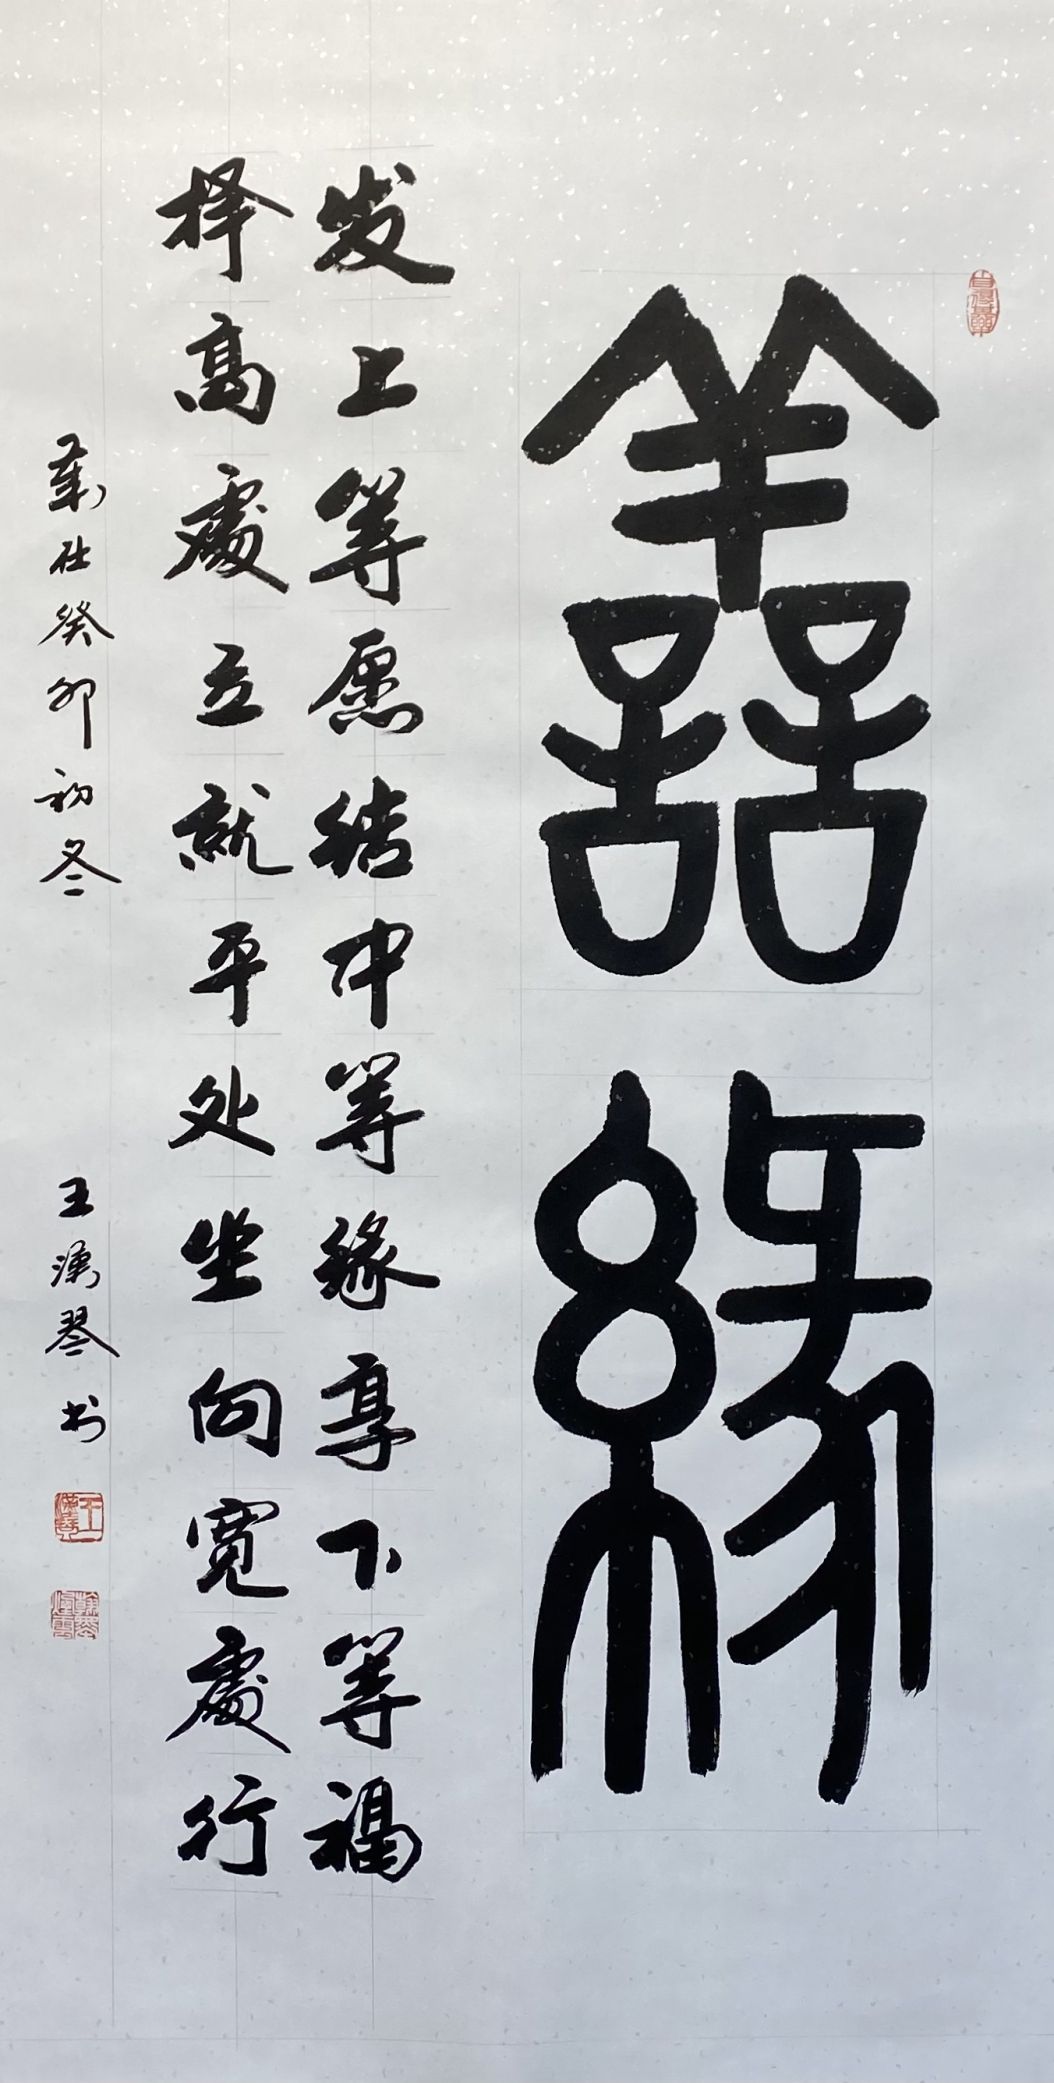 善缘
发上等愿结中等缘享下等福
择高處立就平处坐向宽處行
岁在癸卯初冬
王漢琴书